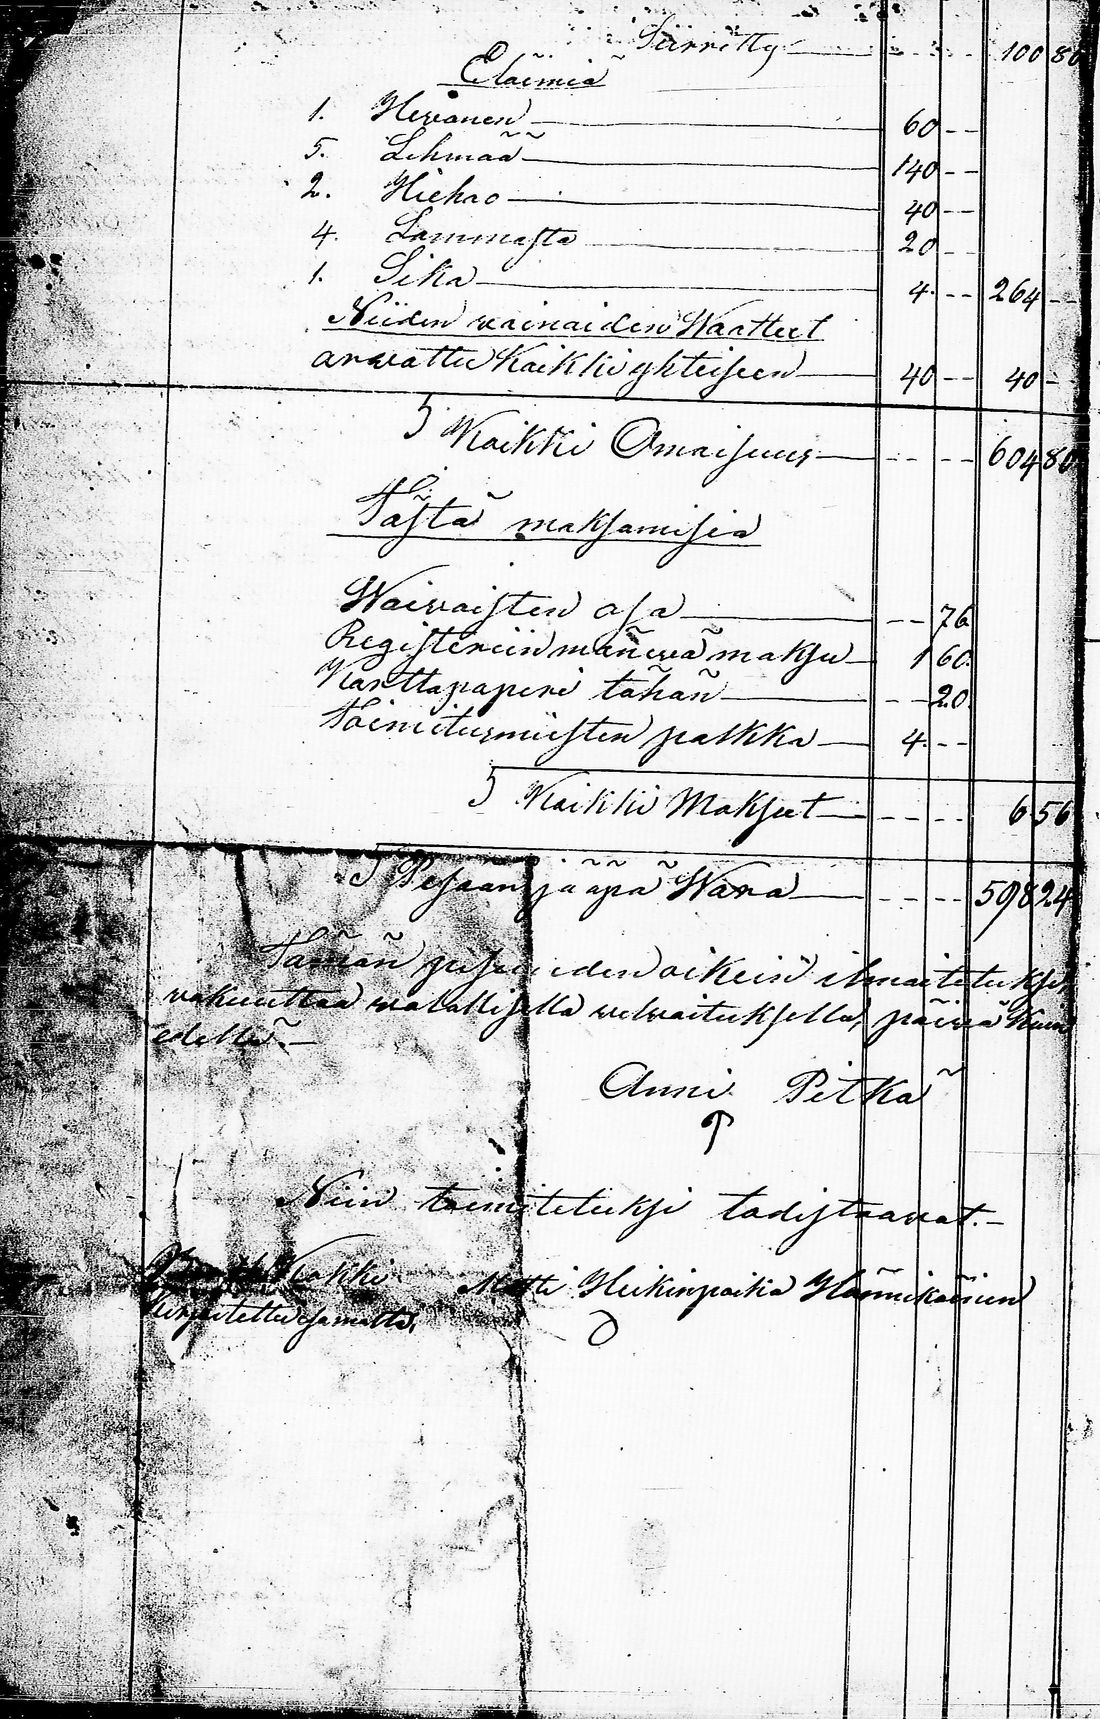 Siirretty - - - - 100 80
Eläimiä
1. Hevonen 60 - -
5. Lehmää 140 - -
2. Hiehao 40 - -
4. Lammasta 20 - -
1. Sika 4. - - 264 -
Niiden vainaiden Waatteet
arvattu Kaikki yhteiseen 40 - - 40 -
Kaikki Omaisuus - - - - 604 80
Tästä maksamisia
Waivaisten osa - - 76
Registeriin mänevä maksu 1 60.
Karttapaperi tähän - - 20.
Toimitusmiesten palkka 4. - -
Kaikki Maksut - - - - 6 56
Pesään jääpä Wara - - - - 598 24
Tämän oikein ilmoitetuksi
vakuuttaa valallisella velvoituksella, päivä Kun
edellä. -
Anni Pitkä
Niin toimitetuksi todistaavat. -
Kokki Matti Heikinpoika Hännikäinen